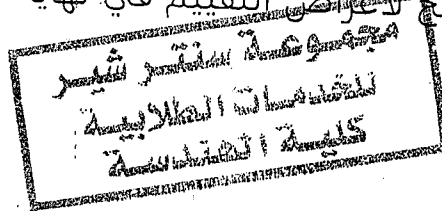 لأغراض التقييم في نها
مجموعة سنتر شير
للخدمات الطلابية
كلية الهندسة